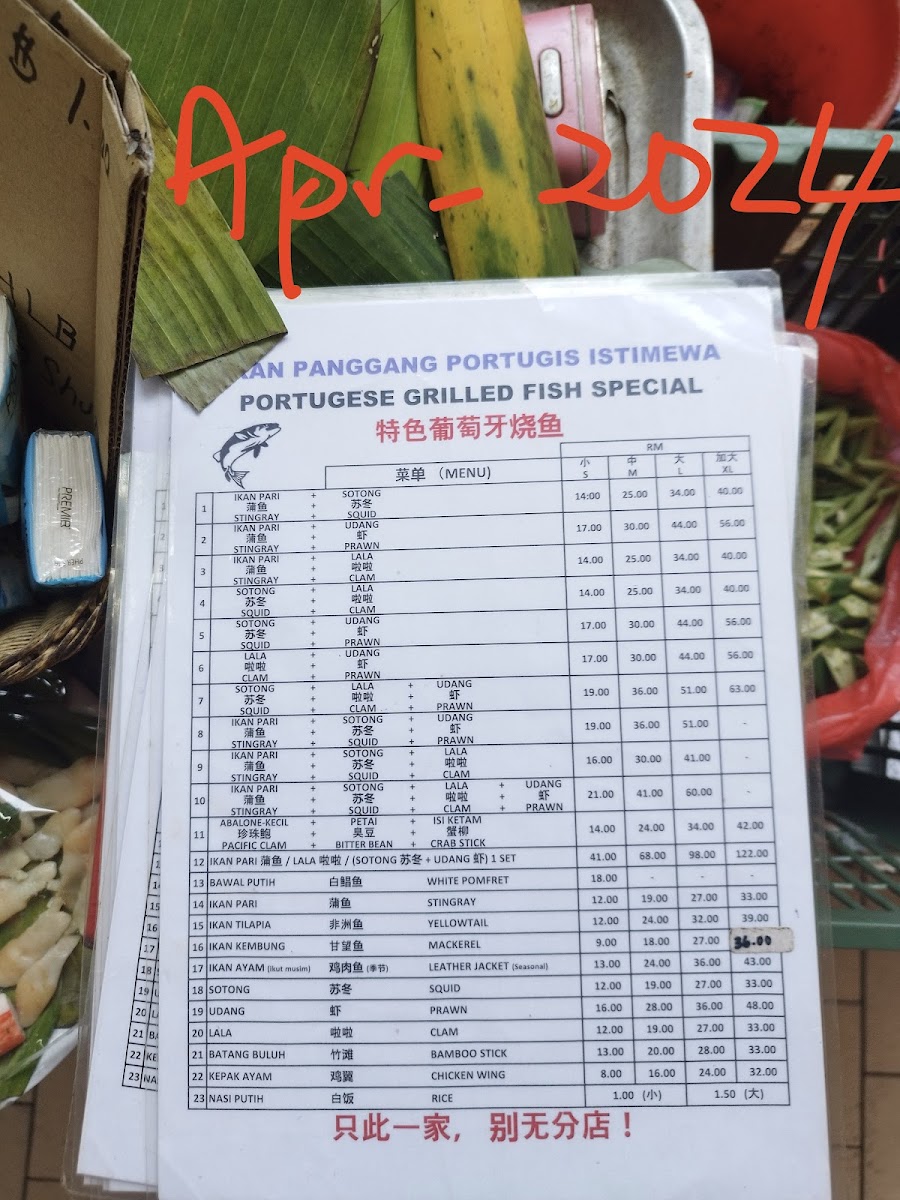 Apr- 2024
PREMIE
KAN PANGGANG PORTUGIS ISTIMEWA
PORTUGESE GRILLED FISH SPECIAL
特色葡萄牙烧鱼
菜单 （MENU) RM
小 中 大 加大
S M L XL
1 IKAN PARI + SOTONG
蒲鱼 + 苏冬 14:00 25.00 34.00 40.00
STINGRAY + SQUID
2 IKAN PARI + UDANG
蒲鱼 + 虾 17.00 30.00 44.00 56.00
STINGRAY + PRAWN
3 IKAN PARI + LALA
蒲鱼 + 啦啦 14.00 25.00 34.00 40.00
STINGRAY + CLAM
4 SOTONG + LALA
苏冬 + 啦啦 14.00 25.00 34.00 40.00
SQUID + CLAM
5 SOTONG + UDANG
苏冬 + 虾 17.00 30.00 44.00 56.00
SQUID + PRAWN
6 LALA + UDANG
啦啦 + 虾 17.00 30.00 44.00 56.00
CLAM + PRAWN
7 SOTONG + LALA + UDANG
苏冬 + 啦啦 + 虾 19.00 36.00 51.00 63.00
SQUID + CLAM + PRAWN
8 IKAN PARI + SOTONG + UDANG
蒲鱼 + 苏冬 + 虾 19.00 36.00 51.00 -
STINGRAY + SQUID + PRAWN
9 IKAN PARI + SOTONG + LALA
蒲鱼 + 苏冬 + 啦啦 16.00 30.00 41.00 -
STINGRAY + SQUID + CLAM
10 IKAN PARI + SOTONG + LALA + UDANG
蒲鱼 + 苏冬 + 啦啦 + 虾 21.00 41.00 60.00 -
STINGRAY + SQUID + CLAM + PRAWN
11 ABALONE-KECIL + PETAI + ISI KETAM
珍珠鲍 + 臭豆 + 蟹柳 14.00 24.00 34.00 42.00
PACIFIC CLAM + BITTER BEAN + CRAB STICK
12 IKAN PARI 蒲鱼 / LALA 啦啦 / (SOTONG 苏冬 + UDANG 虾) 1 SET 41.00 68.00 98.00 122.00
13 BAWAL PUTIH 白鲳鱼 WHITE POMFRET 18.00 - - -
14 IKAN PARI 蒲鱼 STINGRAY 12.00 19.00 27.00 33.00
15 IKAN TILAPIA 非洲鱼 YELLOWTAIL 12.00 24.00 32.00 39.00
16 IKAN KEMBUNG 甘望鱼 MACKEREL 9.00 18.00 27.00 36.00
17 IKAN AYAM (ikut musim) 鸡肉鱼 (季节) LEATHER JACKET (Seasonal) 13.00 24.00 36.00 43.00
18 SOTONG 苏冬 SQUID 12.00 19.00 27.00 33.00
19 UDANG 虾 PRAWN 16.00 28.00 36.00 48.00
20 LALA 啦啦 CLAM 12.00 19.00 27.00 33.00
21 BATANG BULUH 竹滩 BAMBOO STICK 13.00 20.00 28.00 33.00
22 KEPAK AYAM 鸡翼 CHICKEN WING 8.00 16.00 24.00 32.00
23 NASI PUTIH 白饭 RICE 1.00 (小) 1.50 (大)
只此一家， 别无分店！